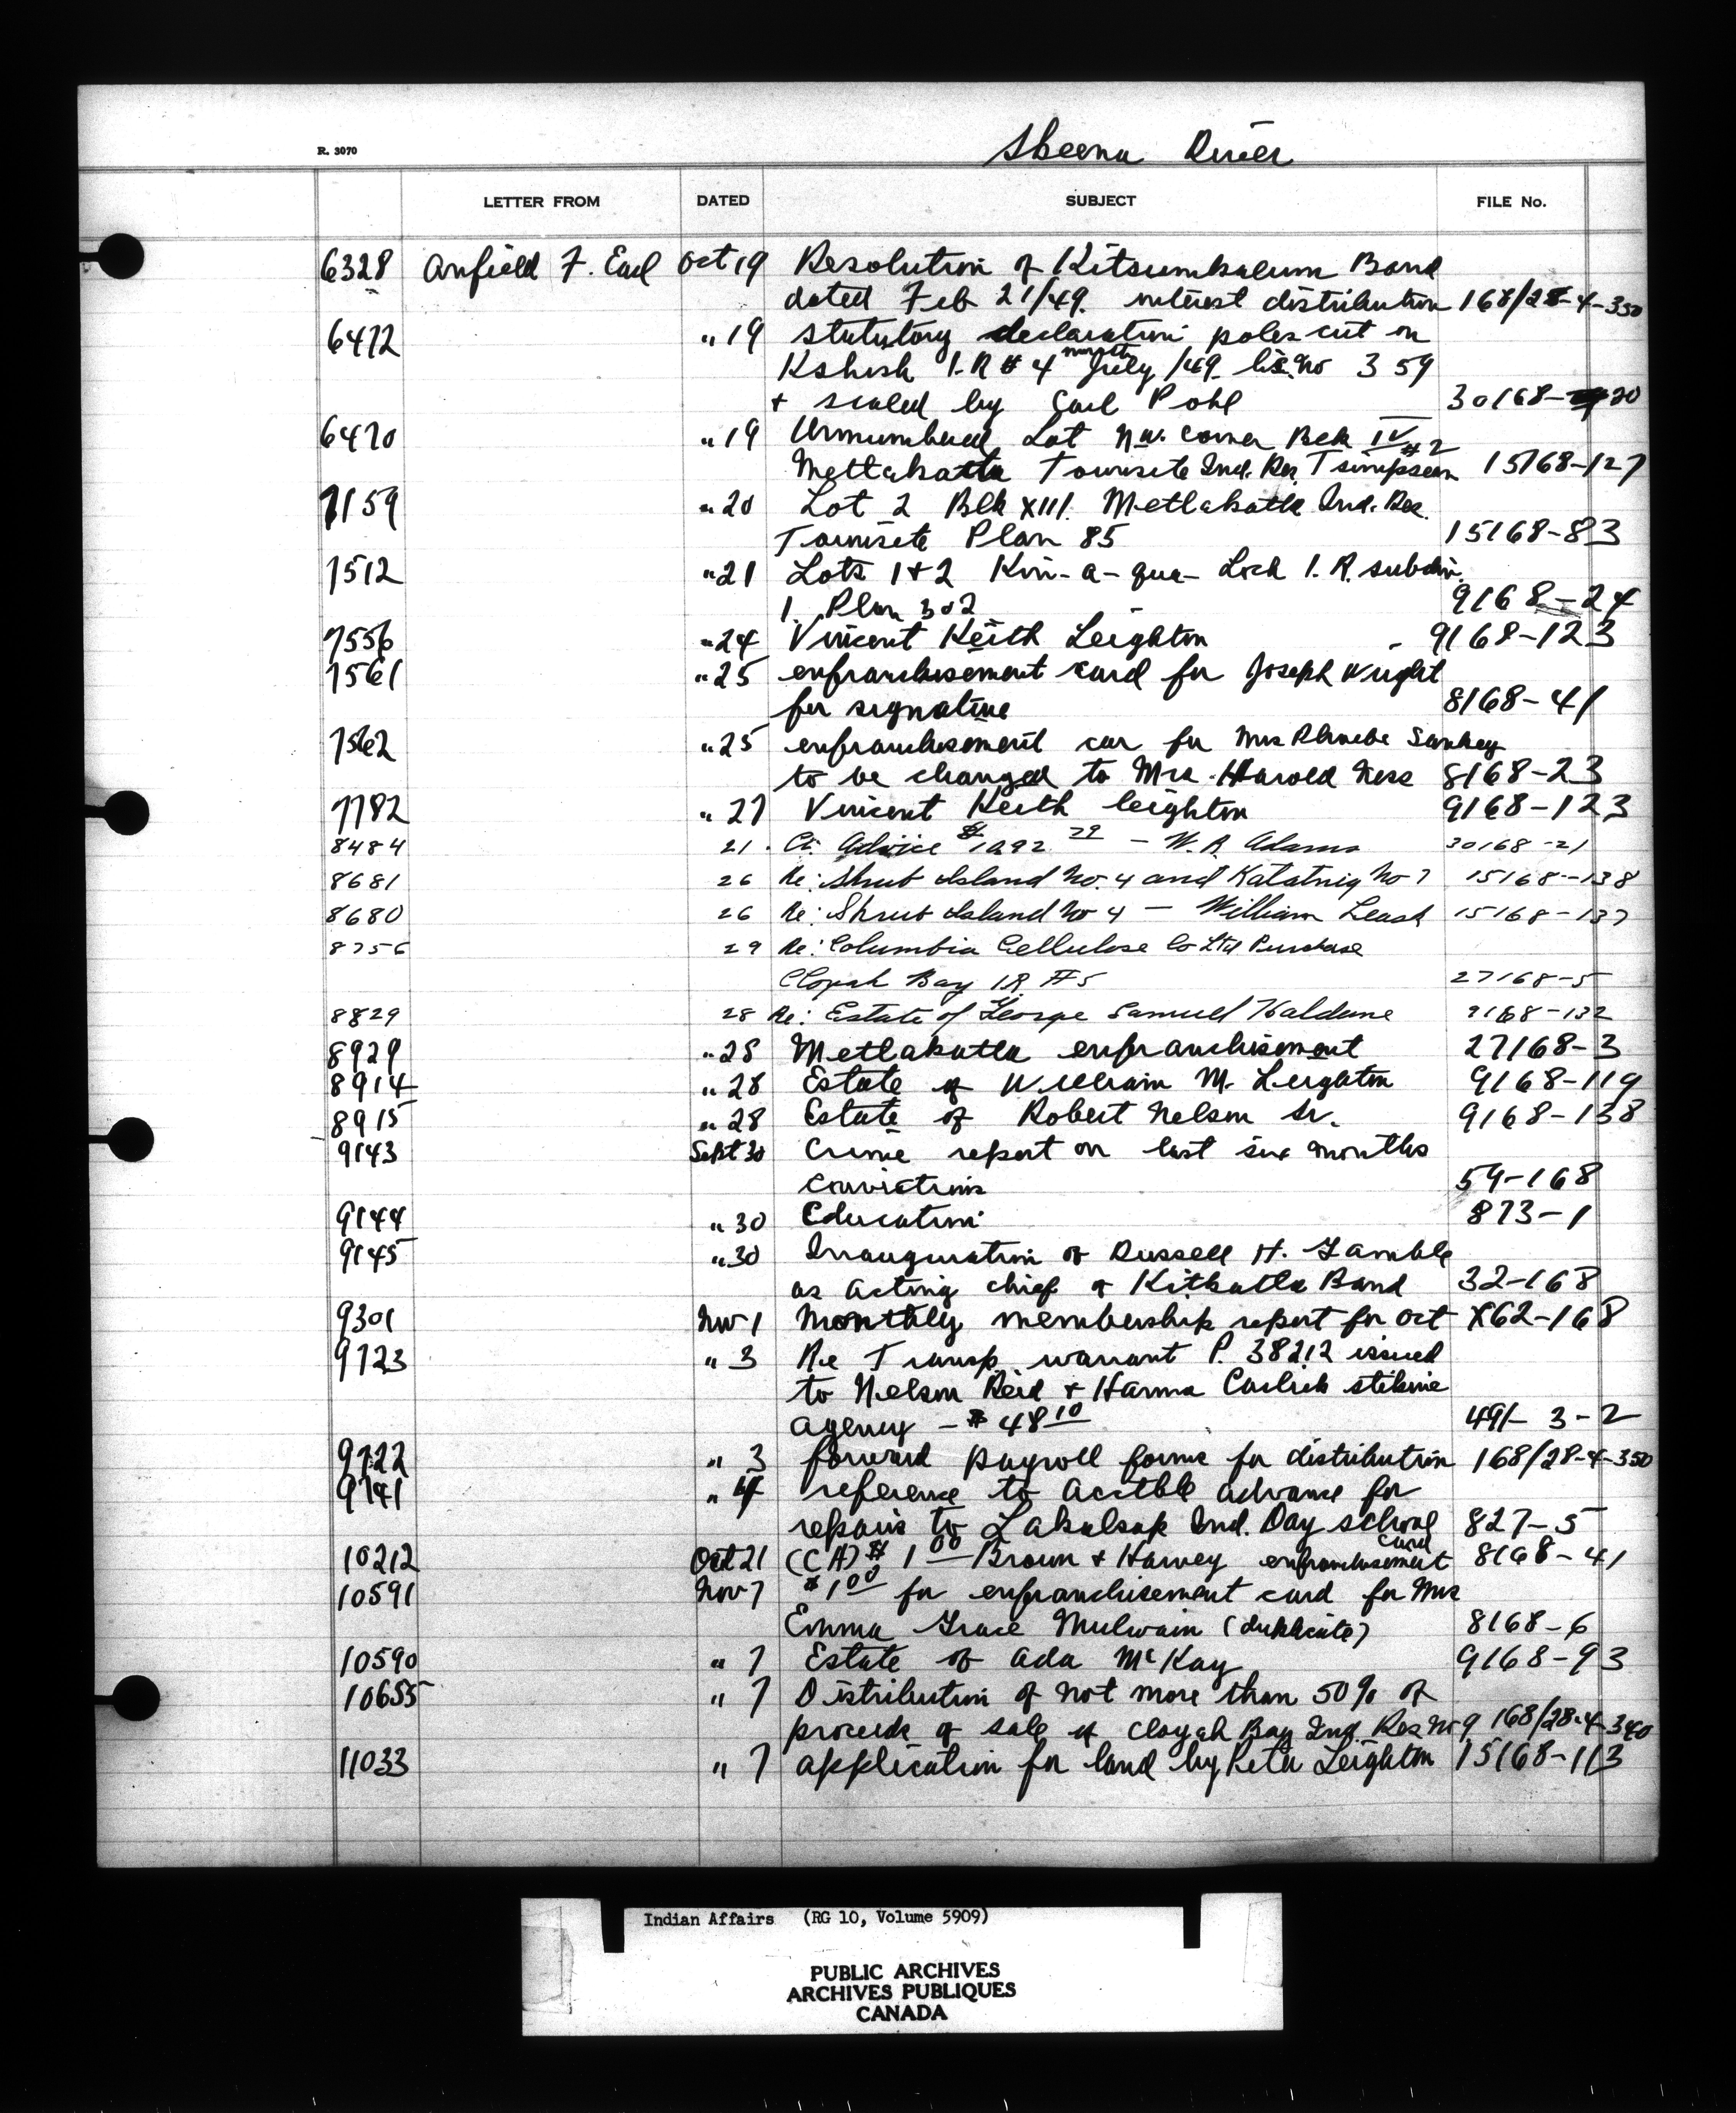 Skeena River
R. 3070
LETTER FROM DATED SUBJECT FILE No.
6328 Anfield F. Earl Oct 19 Resolution of Kitsumkalum Band
dated Feb 21/49. interest distribution 168/28-4-350
6472 " 19 statutory declaration poles cut on
Kshish I.R # 4 month July /49. lic. no 359
+ scaled by Carl Pohl 30168-20
6470 " 19 Unnumbered Lot N.W. corner Blk IV
Metlakatla Townsite Ind. Res. Tsimpsean #2 15168-127
7159 " 20 Lot 2 Blk XIII. Metlakatla Ind. Res.
Townsite Plan 85 15168-83
7512 " 21 Lots 1 + 2 Kin-a-qua- Lick I.R. subdiv.
1. Plan 302 9168-24
7556 " 24 Vincent Keith Leighton - 9168-123
7561 " 25 enfranchisement card for Joseph Wright
for signature 8168-41
7562 " 25 enfranchisement car for Mrs Phoebe Sankey
to be changed to Mrs. Harold Ness 8168-23
7782 " 27 Vincent Keith Leighton 9168-123
8484 21. Cr. Advice $1292 29 - W. R. Adams 30168-21
8681 26 Re: Shrub Island No. 4 and Katatnig No 7 15168-138
8680 26 Re: Shrub Island No 4 - William Leask 15168-137
8756 29 Re: Columbia Cellulose Co Ltd Purchase
Cloyah Bay I.R #5 27168-5
8829 28 Re: Estate of George Samuel Haldane 9168-132
8929 " 28 Metlakatla enfranchisement 27168-3
8914 " 28 Estate of William M. Leighton 9168-119
8915 " 28 Estate of Robert Nelson Sr. 9168-138
9143 Sept 30 Crime report on last six months
convictions 59-168
9144 " 30 Education 873-1
9145 " 30 Inauguration of Russell H. Gamble
as acting chief of Kitkatla Band 32-168
9301 Nov 1 Monthly membership report for Oct X62-168
9723 " 3 Re Transp. warrant P. 38212 issued
to Nelson Reid + Harma Carlick Stikine
agency - $ 48 10 491- 3-2
9722 " 3 forward payroll forms for distribution 168/28-4-350
9741 " 4 reference to acctble advance for
repairs to Lakalsap Ind. Day school 827-5
10212 Oct 21 (CA) $ 1 00 - Brown + Harvey enfranchisement card 8168-41
10591 Nov 7 $1 00 for enfranchisement card for Mrs
Emma Grace Mulwain (duplicate) 8168-6
10590 " 7 Estate of Ada McKay 9168-93
10655 " 7 Distribution of not more than 50% of
proceeds of sale of Cloyah Bay Ind. Res No 9 168/28-4-340
11033 " 7 application for land by Peter Leighton 15168-113
Indian Affairs (RG 10, Volume 5909)
PUBLIC ARCHIVES
ARCHIVES PUBLIQUES
CANADA